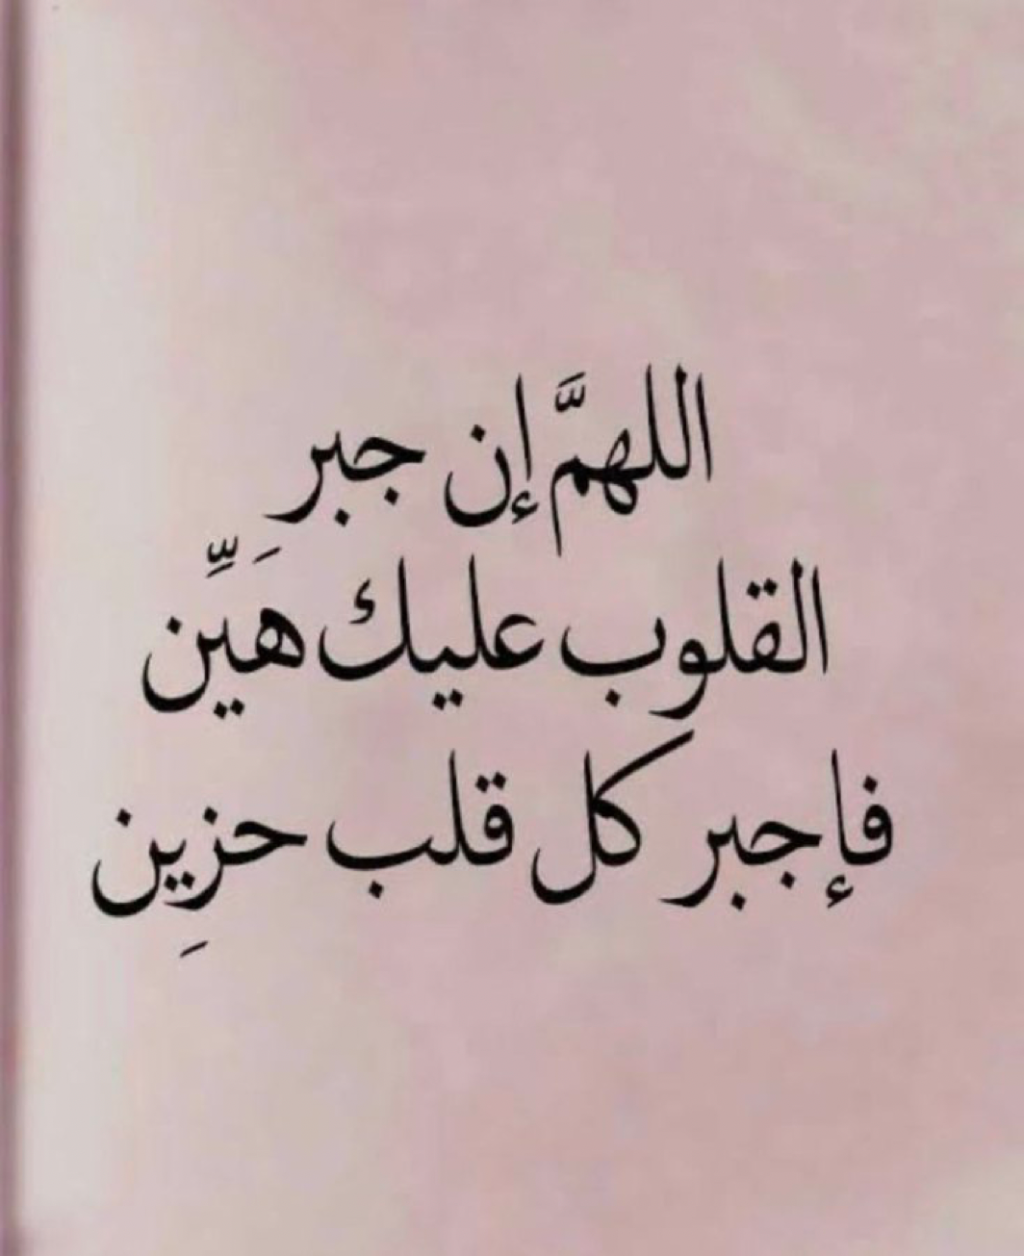 اللهمَّ إن جبر
القلوب عليك هَيِّن
فإجبر كل قلب حزيِن